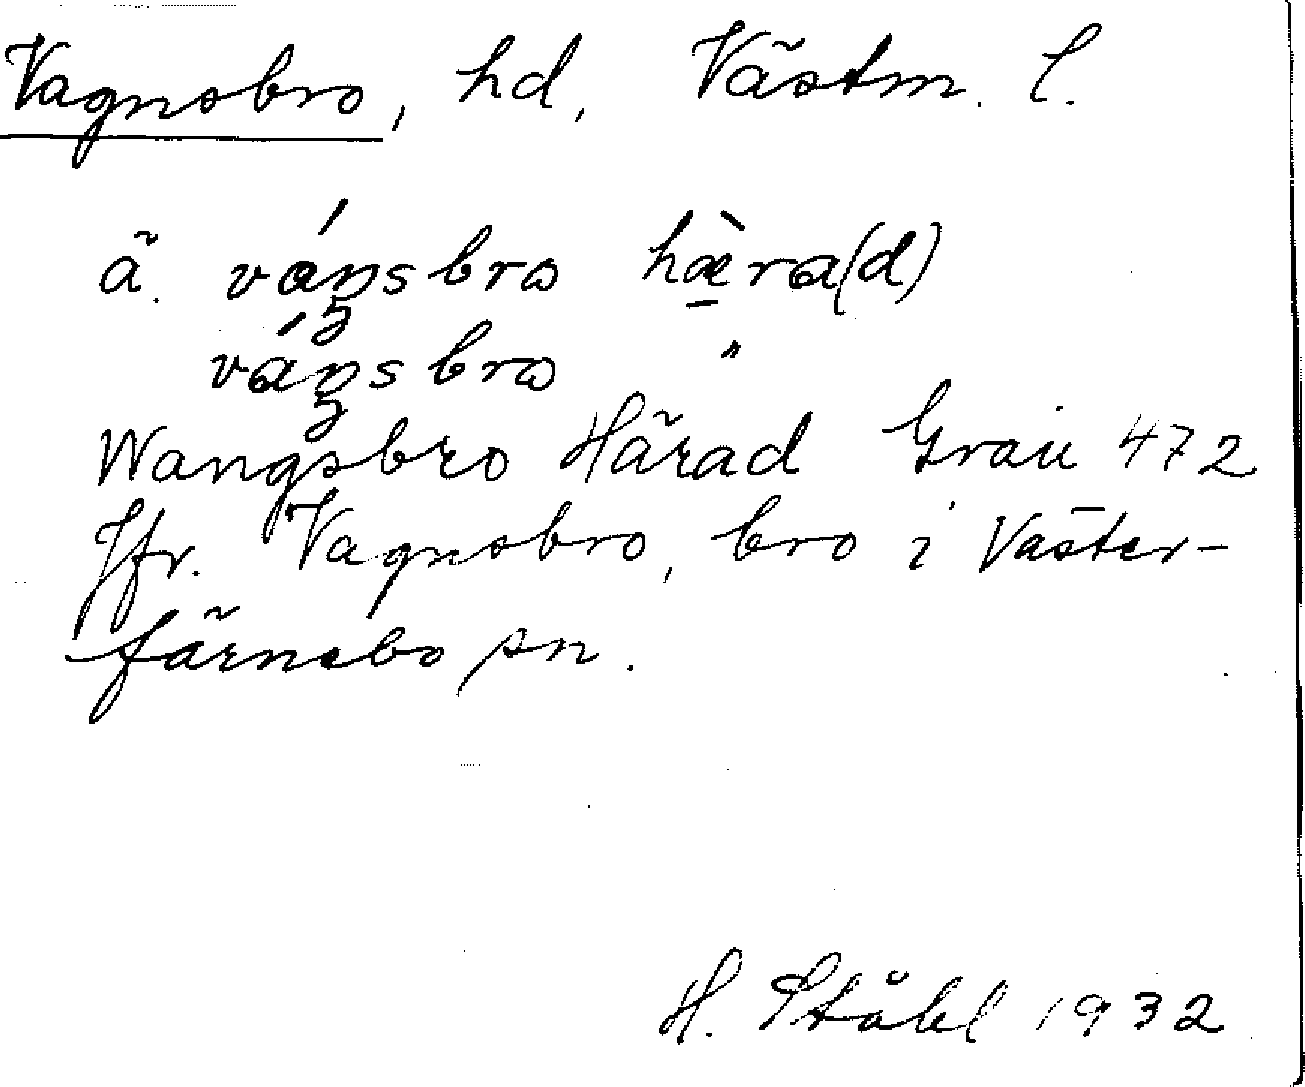 Vagnsbro, hd, Västm. l.
ä. váŋsbrω hæ̀ra(d)
váŋsbrω "
Wangsbro Härad Grau 472
Jfr. Vagnsbro, bro i Väster-
färnebo sn.
H. Ståhl 1932